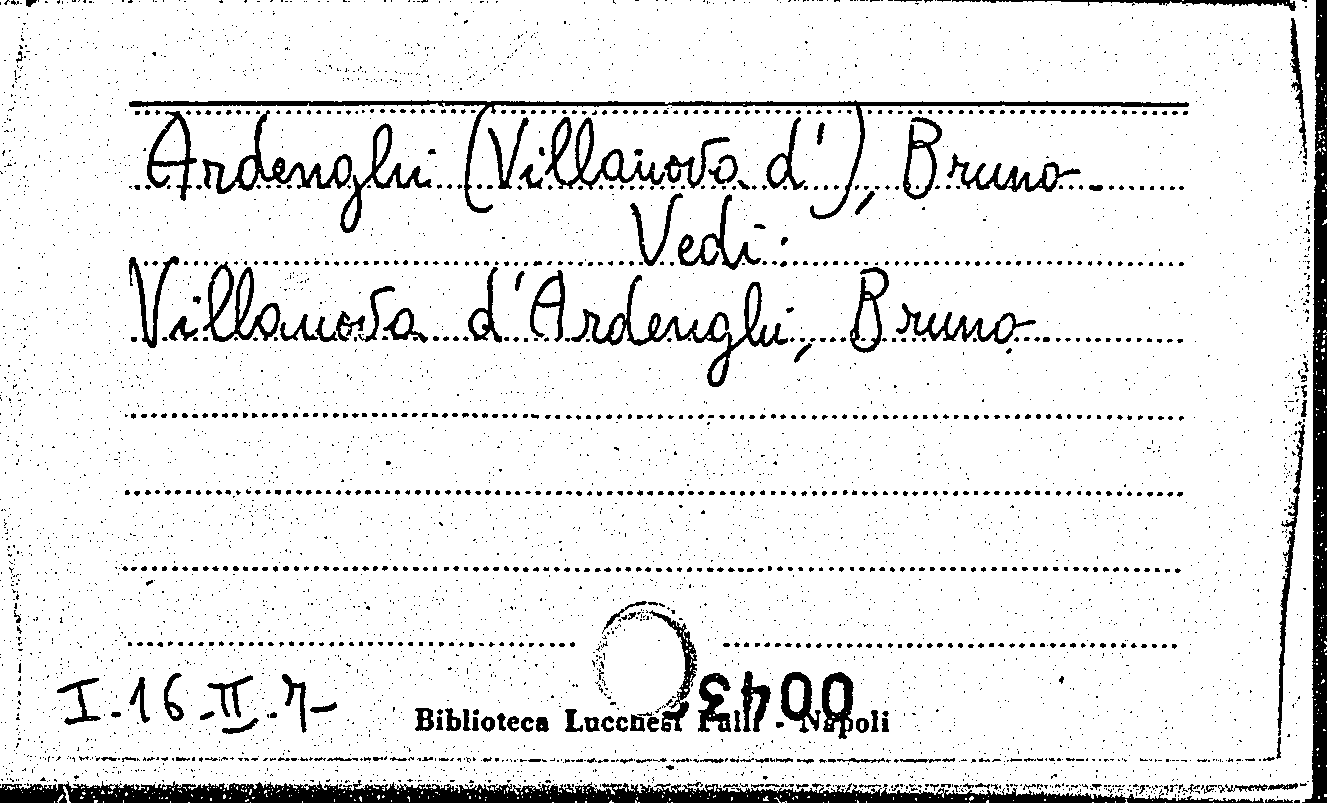 Ardenghi (Villanova d'), Bruno-
Vedi:
Villanova d'Ardenghi, Bruno
I.16.II.7-
Biblioteca Lucchesi Palli - Napoli